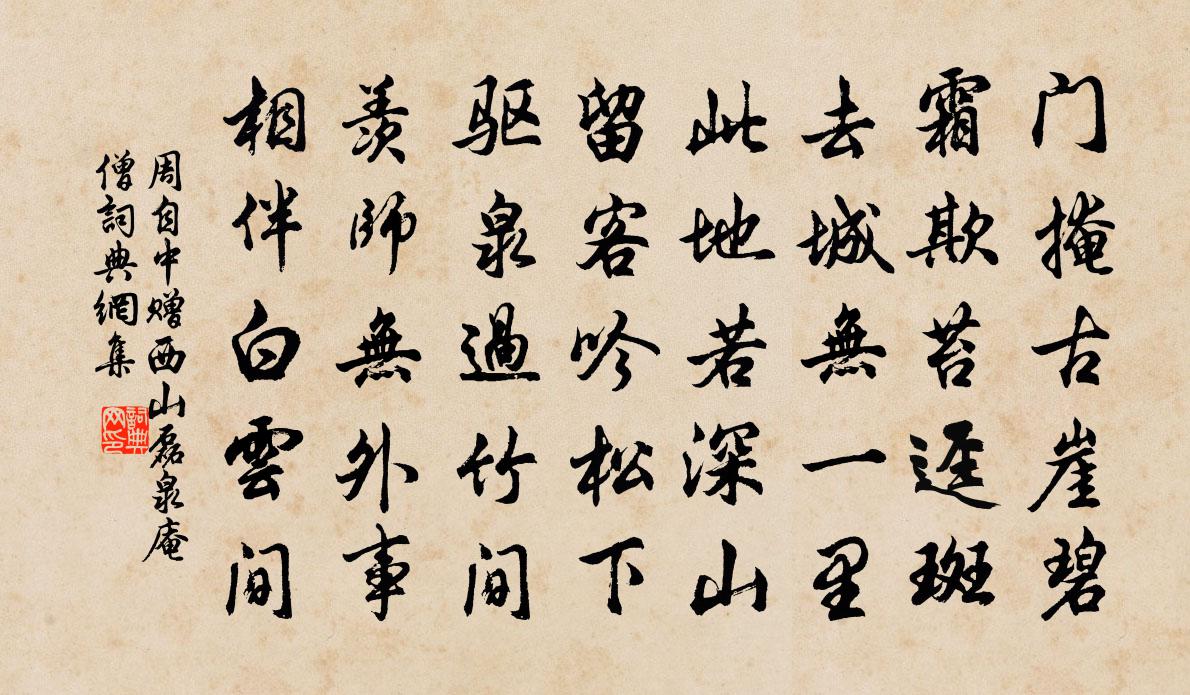 门掩古崖碧
霜欺苔迳斑
去城無一里
此地若深山
留客吟松下
驱泉過竹间
羡師無外事
相伴白雲间
周自中赠西山磊泉庵
僧詞典網集
詞典网印